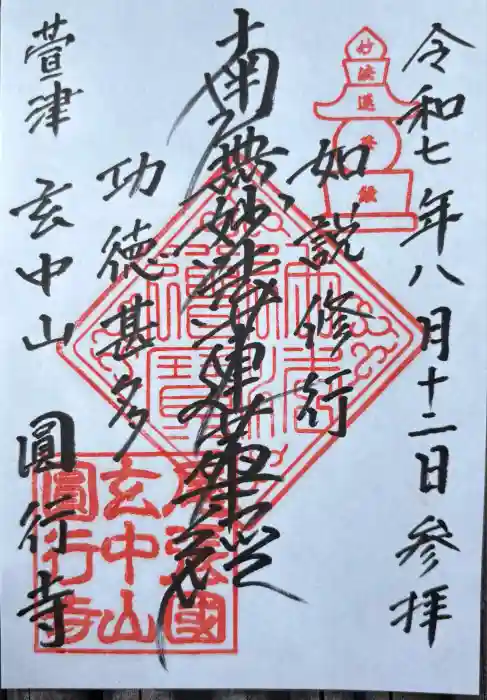 令和七年八月十二日 参拝
妙法蓮華経
如説修行
南無妙法蓮華経
功徳甚多
萱津 玄中山 圓行寺
尾張國
玄中山
圓行寺